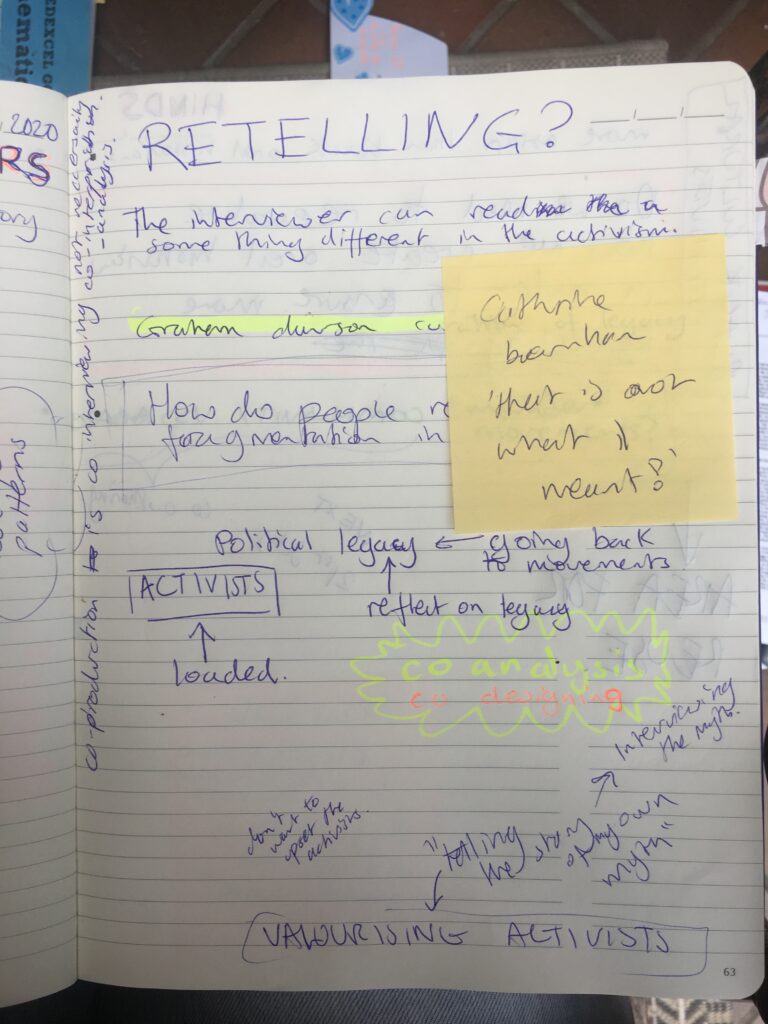 EDEXCEL
, 2020
RS
ory
patterns
co-production is co interviewing not necessarily
co-interpretation
-analysis.
RETELLING?
The interviewer can read
some thing different in the activism.
Graham
How do people re
fragmentation in
Cathrine
'that is not
what I
meant?'
Political legacy ← going back
to movements
ACTIVISTS
reflect on legacy
loaded.
co analysis
co designing
Interviewing
the myth.
don't
want to
upset the
activists.
"telling
the story
of my own
myth"
VALOURISING ACTIVISTS
63